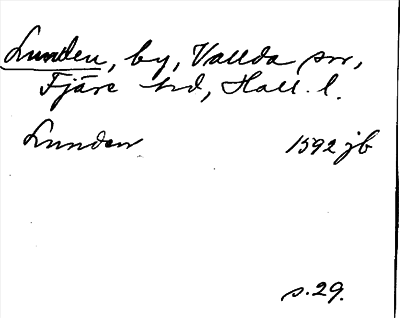 Lunden, by, Vallda sn,
Fjäre hd, Hall. l.
Lunden 1592 jb
s. 29.